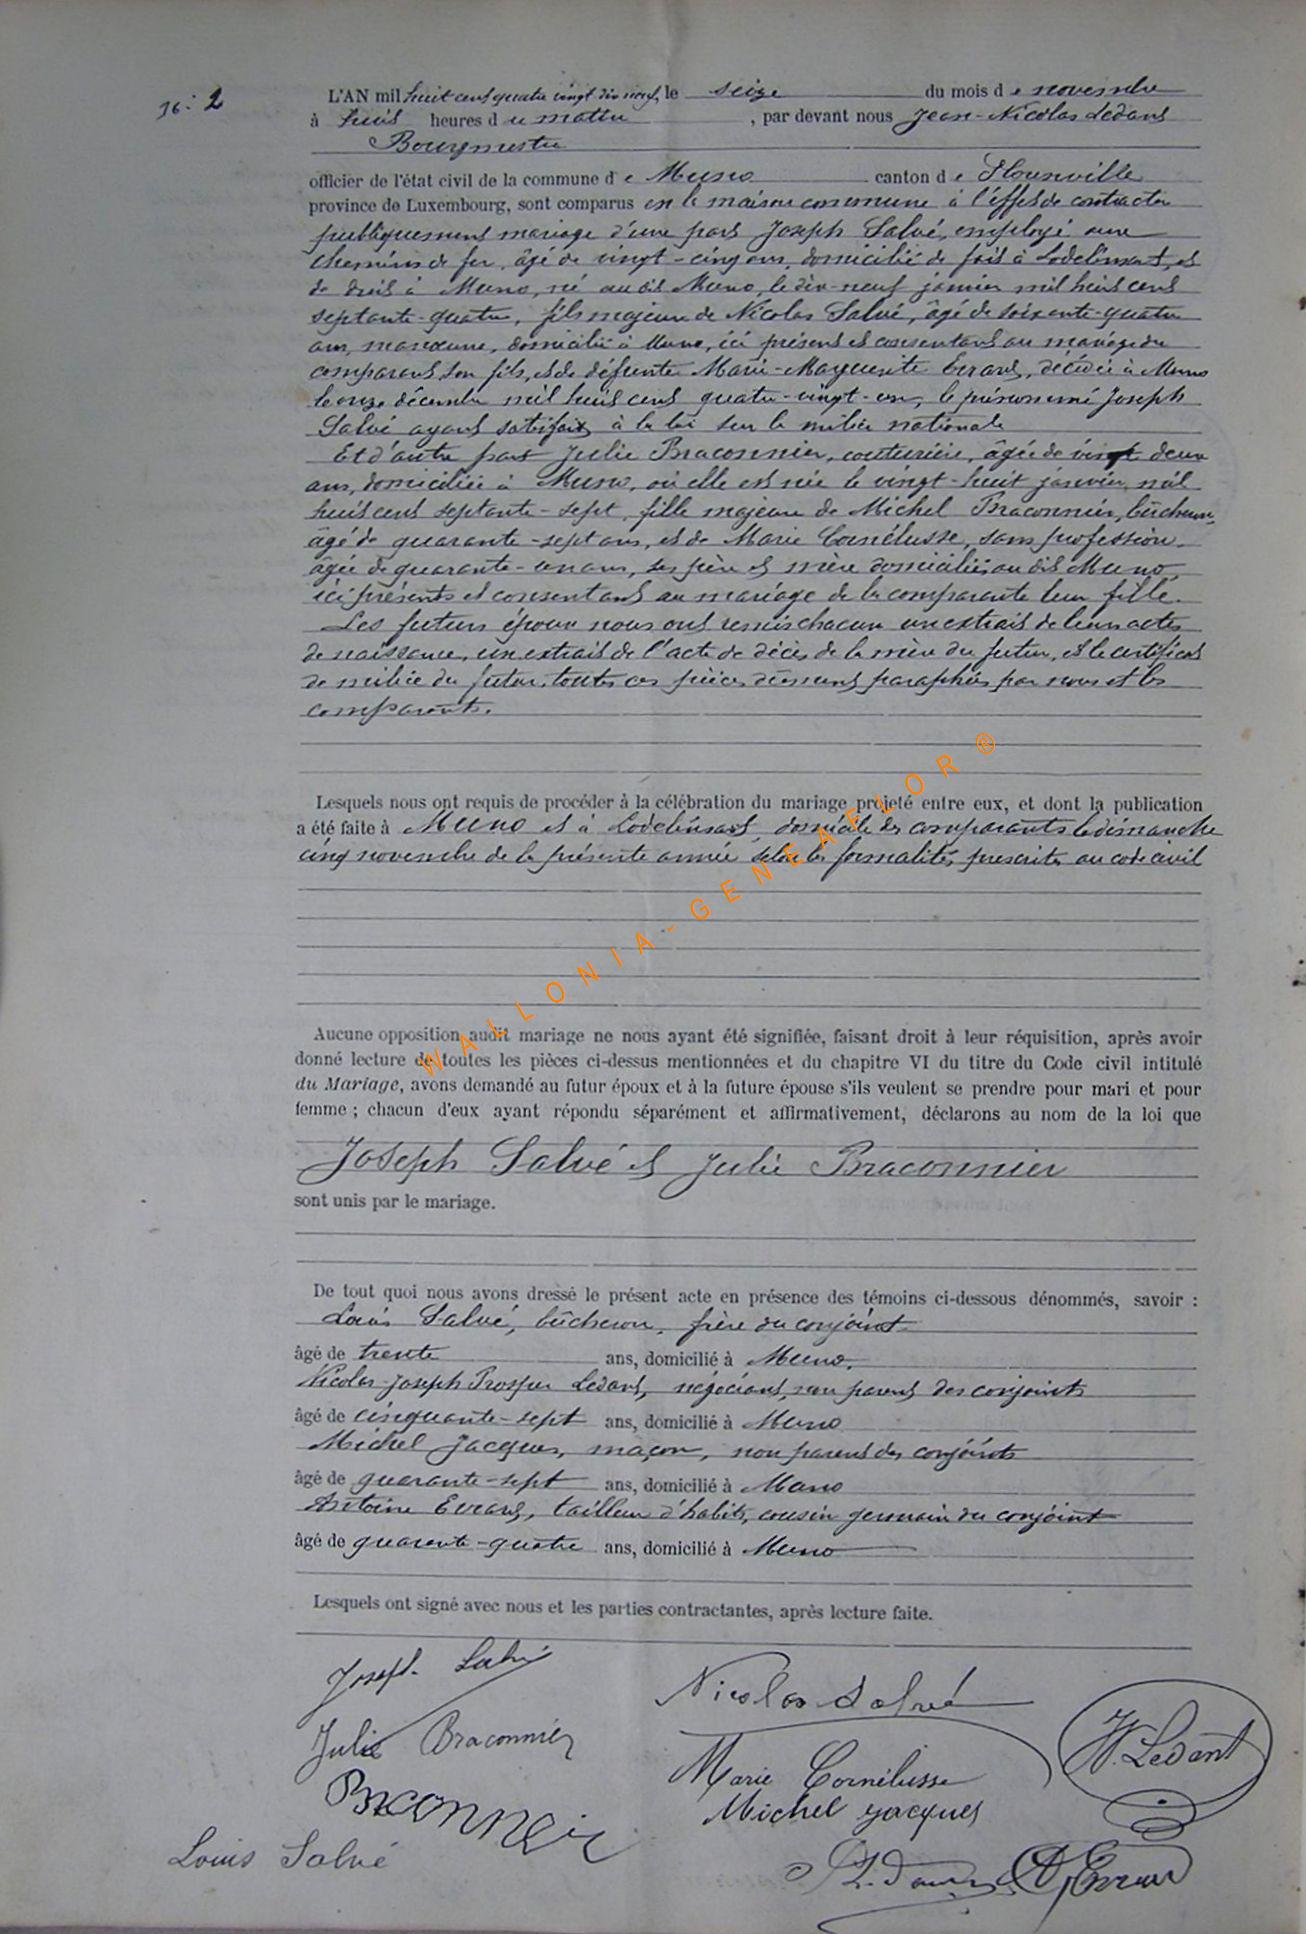 16: 2
L'AN mil huit cent quatre vingt dix neuf, le seize du mois de novembre
à huit heures du matin, par devant nous Jean-Nicolas Ledant
Bourgmestre
officier de l'état civil de la commune de Muno canton de Florenville
province de Luxembourg, sont comparus en la maison commune à l'effet de contracter
publiquement mariage d'une part Joseph Salvé, employé aux
chemins de fer, âgé de vingt-cinq ans, domicilié de fait à Lodelinsart, et
de droit à Muno, né au dit Muno, le dix-neuf janvier mil huit cent
septante-quatre, fils majeur de Nicolas Salvé, âgé de soixante-quatre
ans, domicilié à Muno, ici présent et consentant au mariage du
comparant son fils, et de défunte Marie-Marguerite Evrard, décédée à Muno
le onze décembre mil huit cent quatre-vingt-un, le prénommé Joseph
Salvé ayant satisfait à la loi sur la milice nationale
Et d'autre part Julie Braconnier, couturière, âgée de vingt deux
ans, domiciliée à Muno, où elle est née le vingt-huit janvier mil
huit cent septante-sept, fille majeure de Michel Braconnier, bûcheron,
âgé de quarante-sept ans, et de Marie Cornélusse, sans profession,
âgée de quarante-un ans, ses père et mère domiciliés au dit Muno,
ici présents et consentants au mariage de la comparante leur fille.
Les futurs époux nous ont remis chacun un extrait de leurs actes
de naissance, un extrait de l'acte de décès de la mère du futur, et le certificat
de milice du futur, toutes ces pièces dûment paraphées par nous et les
comparants.
Lesquels nous ont requis de procéder à la célébration du mariage projeté entre eux, et dont la publication
a été faite à Muno et à Lodelinsart, domicile des comparants le dimanche
cinq novembre de la présente année selon les formalités prescrites au code civil
WALLONIA-GENEAFLOR®
Aucune opposition audit mariage ne nous ayant été signifiée, faisant droit à leur réquisition, après avoir
donné lecture de toutes les pièces ci-dessus mentionnées et du chapitre VI du titre du Code civil intitulé
du Mariage, avons demandé au futur époux et à la future épouse s'ils veulent se prendre pour mari et pour
femme ; chacun d'eux ayant répondu séparément et affirmativement, déclarons au nom de la loi que
Joseph Salvé et Julie Braconnier
sont unis par le mariage.
De tout quoi nous avons dressé le présent acte en présence des témoins ci-dessous dénommés, savoir :
Louis Salvé, bûcheron, frère du conjoint
âgé de trente ans, domicilié à Muno.
Nicolas-Joseph Prosper Ledant, négociant, non parent des conjoints
âgé de cinquante-sept ans, domicilié à Muno
Michel Jacques, maçon, non parent des conjoints
âgé de quarante-sept ans, domicilié à Muno
Antoine Evrard, tailleur d'habits, cousin germain du conjoint
âgé de quarante-quatre ans, domicilié à Muno
Lesquels ont signé avec nous et les parties contractantes, après lecture faite.
Joseph Salvé
Nicolas Salvé
Julie Braconnier
N. Ledant
Marie Cornélusse
Braconnier
Michel Jacques
Louis Salvé
A Evrard